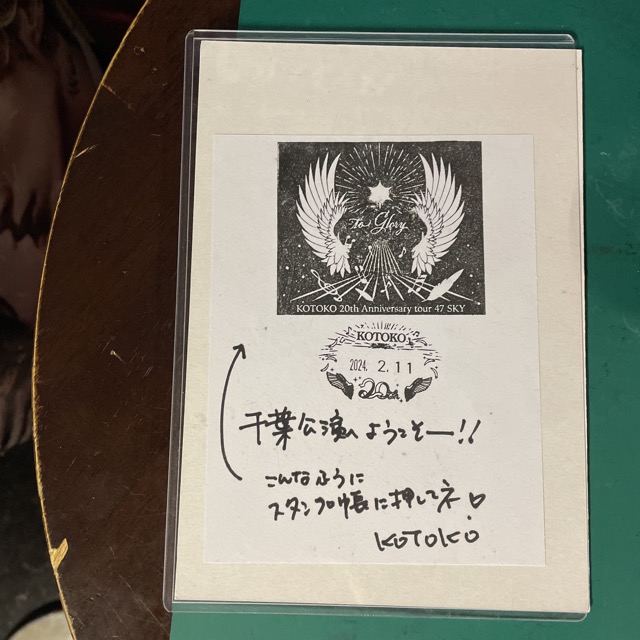 To Glory
KOTOKO 20th Anniversary tour 47 SKY
KOTOKO
2024. 2.11
20th
千葉公演へようこそー!!
こんなふうに
スタンプ帳に押してネ♡
KOTOKO